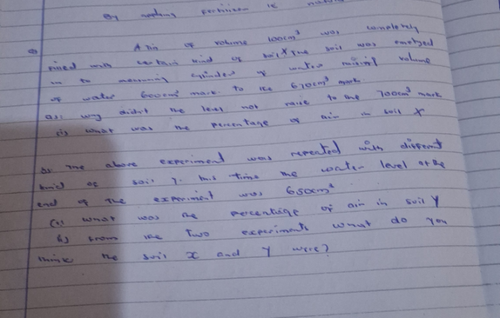 By
A tin of volume 100cm³ was completely
filled with certain kind of soil X the soil was emptied
in to measuring cylinder of water raising volume
of water 600cm³ mark to the 670cm³ mark
a) i) why didn't the level not raise to the 700cm³ mark
ii) what was the percentage of air in soil X
b) The above experiment was repeated with different
kind of soil Y this time the water level at the
end of the experiment was 650cm³
(a) what was the percentage of air in soil Y
b) from the two experiments what do you
think the soil X and Y were?